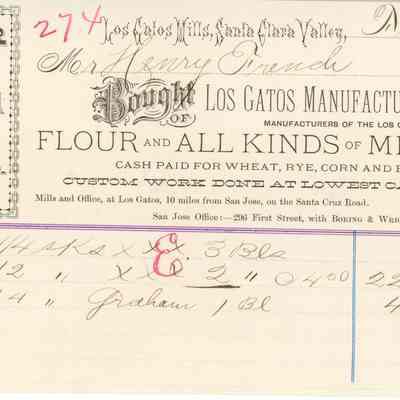 274 Los Gatos Mills, Santa Clara Valley,
Mr Henry French
Bought OF LOS GATOS MANUFACTU
MANUFACTURERS OF THE LOS G
FLOUR AND ALL KINDS OF MI
CASH PAID FOR WHEAT, RYE, CORN AND B
CUSTOM WORK DONE AT LOWEST CA
Mills and Office, at Los Gatos, 10 miles from San Jose, on the Santa Cruz Road.
San Jose Office:—296 First Street, with BORING & WRI
14 sks x x x 3 Bls
12 " x x x 2 " @ 4.00 22
4 " Graham 1 Bl 4
E.